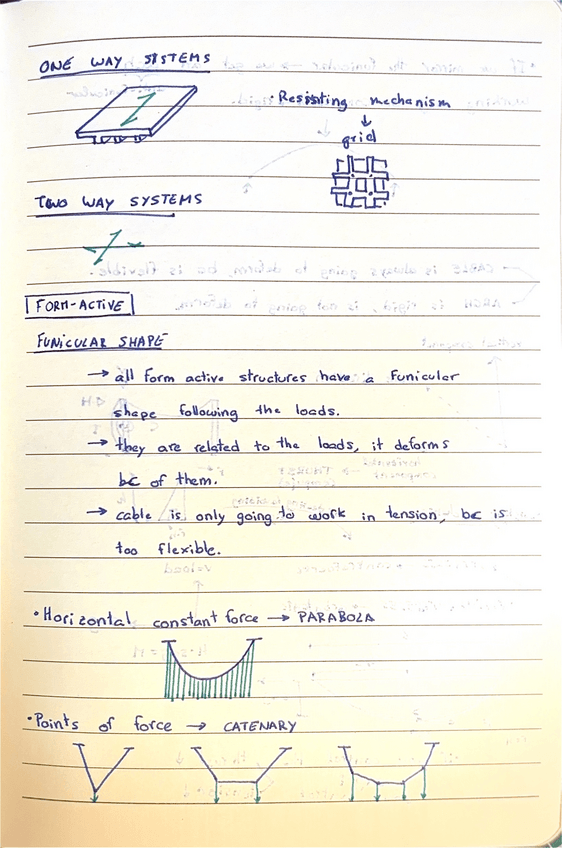 ONE WAY SYSTEMS
· Resisting mechanism
grid
TWO WAY SYSTEMS
FORM-ACTIVE
FUNICULAR SHAPE
→ all form active structures have a Funicular
shape following the loads.
→ they are related to the loads, it deforms
bc of them.
→ cable is only going to work in tension, bc is
too flexible.
· Horizontal constant force → PARABOLA
· Points of force → CATENARY